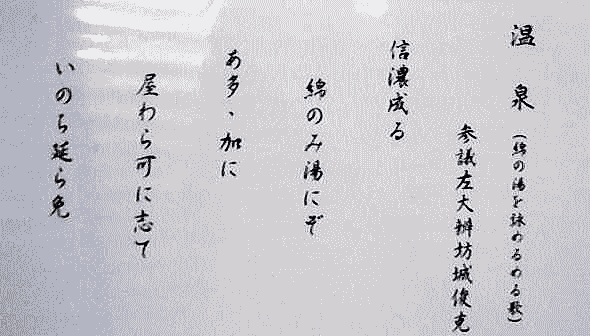 温泉 (綿の湯を詠めるめる歌)
参議左大辨坊城俊克
信濃成る
綿のみ湯にぞ
あ多ゝ加に
屋わら可に志て
いのち延ら免